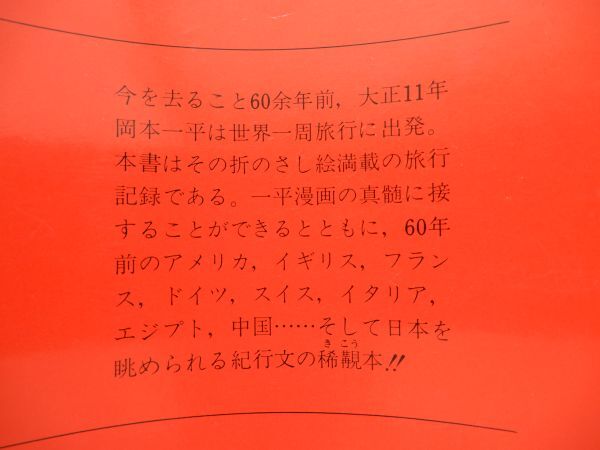 今を去ること60余年前，大正11年
岡本一平は世界一周旅行に出発。
本書はその折のさし絵満載の旅行
記録である。一平漫画の真髄に接
することができるとともに，60年
前のアメリカ，イギリス，フラン
ス，ドイツ，スイス，イタリア，
エジプト，中国……そして日本を
眺められる紀行文の稀覯本!!
きこう